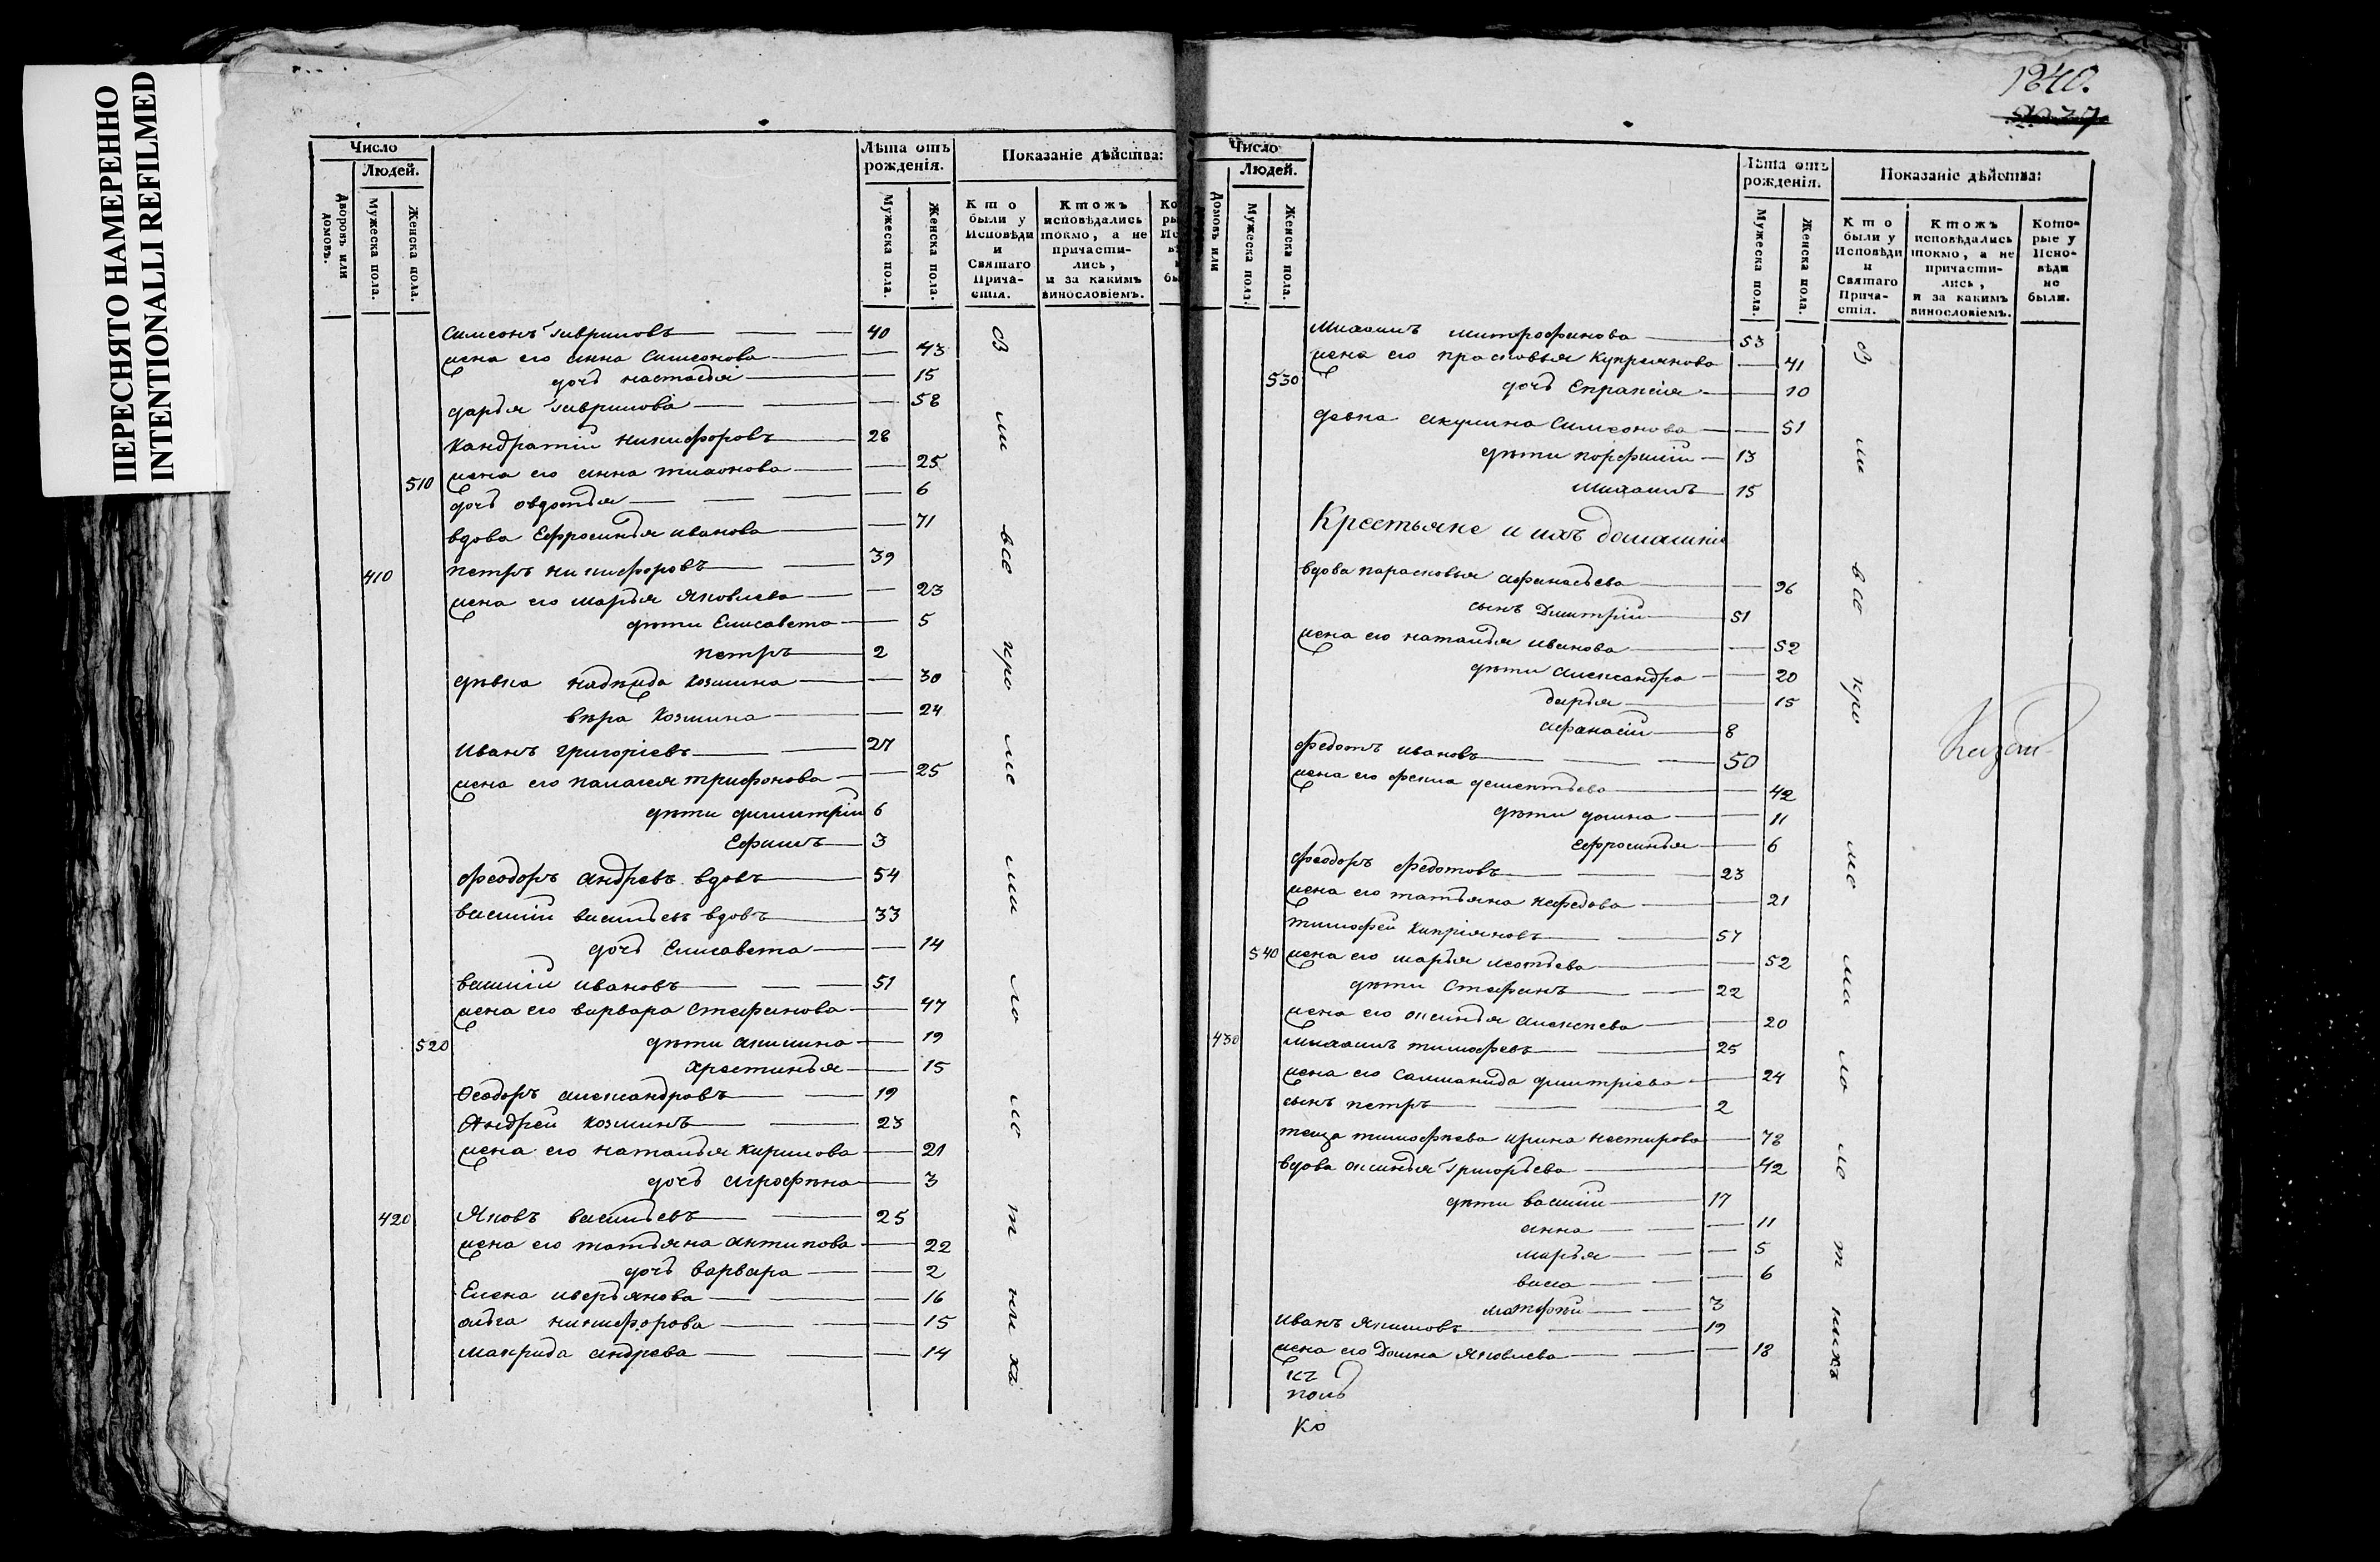 ПЕРЕСНЯТО НАМЕРЕННО
INTENTIONALLI REFILMED
Число
Людей.
Дворовъ или домовъ.
Мужеска пола.
Женска пола.
Лѣта отъ рожденія.
Мужеска пола.
Женска пола.
Показаніе дѣйства:
Кто были у Исповѣди и Святаго Причастія.
Ктожъ исповѣдались токмо, а не причастились, и за какимъ винословіемъ.
Симеонъ Гавриловъ 40
жена его анна Симеонова 43
дочь настасья 15
дарья Гаврилова 58
Кандратій Никифоровъ 28
жена его анна тихонова 25
510 дочь овдотья 6
вдова Ефросинья иванова 71
410 петръ никифоровъ 39
жена его марья Яковлева 23
дѣти Елисавета 5
петръ 2
дѣвка надѣжда козмина 30
вѣра козмина 24
Иванъ григоріевъ 27
жена его палагея трифонова 25
дѣти димитрій 6
Ефимъ 3
феодоръ андревъ вдовъ 54
василій васильевъ вдовъ 33
дочь Елисавета 14
василій ивановъ 51
жена его варвара стефанова 47
520 дѣти акилина 19
христинья 15
Ѳеодоръ александровъ 19
Андрей козминъ 23
жена его наталья кирилова 21
дочь агрофѣна 3
420 Яковъ васильевъ 25
жена его татьяна антипова 22
дочь варвара 2
Елена аверьянова 16
ольга никифорова 15
макрида андрева 14
всѣ кро ме ма ло лѣ т
1840.
Число
Людей.
Домовъ или
Мужеска пола.
Женска пола.
Лѣта отъ рожденія.
Мужеска пола.
Женска пола.
Показаніе дѣйства:
Кто были у Исповѣди и Святаго Причастія.
Ктожъ исповѣдались токмо, а не причастились, и за какимъ винословіемъ.
Которые у Исповѣди не были.
Михаилъ митрофанова 53
жена его прасковья Куприянова 41
530 дочь Епраксія 10
девка акулина Симеонова 51
дѣти порфилій 13
Михаилъ 15
Крестьяне и ихъ домашнія
вдова парасковья афанасьева 96
сынъ Дмитрій 51
жена его наталья иванова 52
дѣти александра 20
дарья 15
афанасій 8
федотъ ивановъ 50
жена его фекла дементьева 42
дѣти домна 11
Ефросинья 6
феодоръ федотовъ 23
жена его татьяна нефедова 21
тимофей киприяновъ 57
540 жена его марья леотьева 52
дѣти Стефанъ 22
жена его аксинья алексеева 20
430 михаилъ тимофевъ 25
жена его Саломанида дмитріева 24
сынъ петръ 2
теща тимофѣева ирина нестирова 78
вдова аксинья григорьева 42
дѣти василій 17
анна 11
марья 5
васса 6
матфѣй 3
иванъ Якимовъ 19
жена его Домна Яковлева 18
все кро ме ма ло ле т нихъ